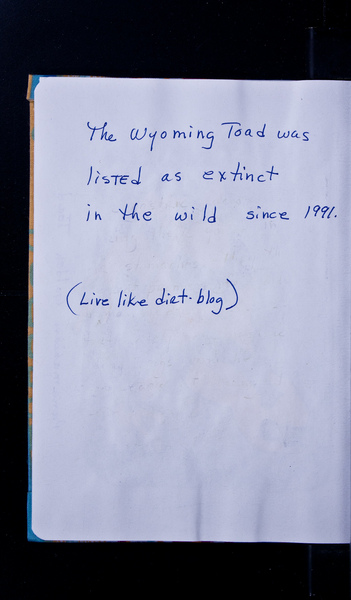 The Wyoming Toad was
lisTED as extinct
in the wild since 1991.
(Live like dirt.blog)